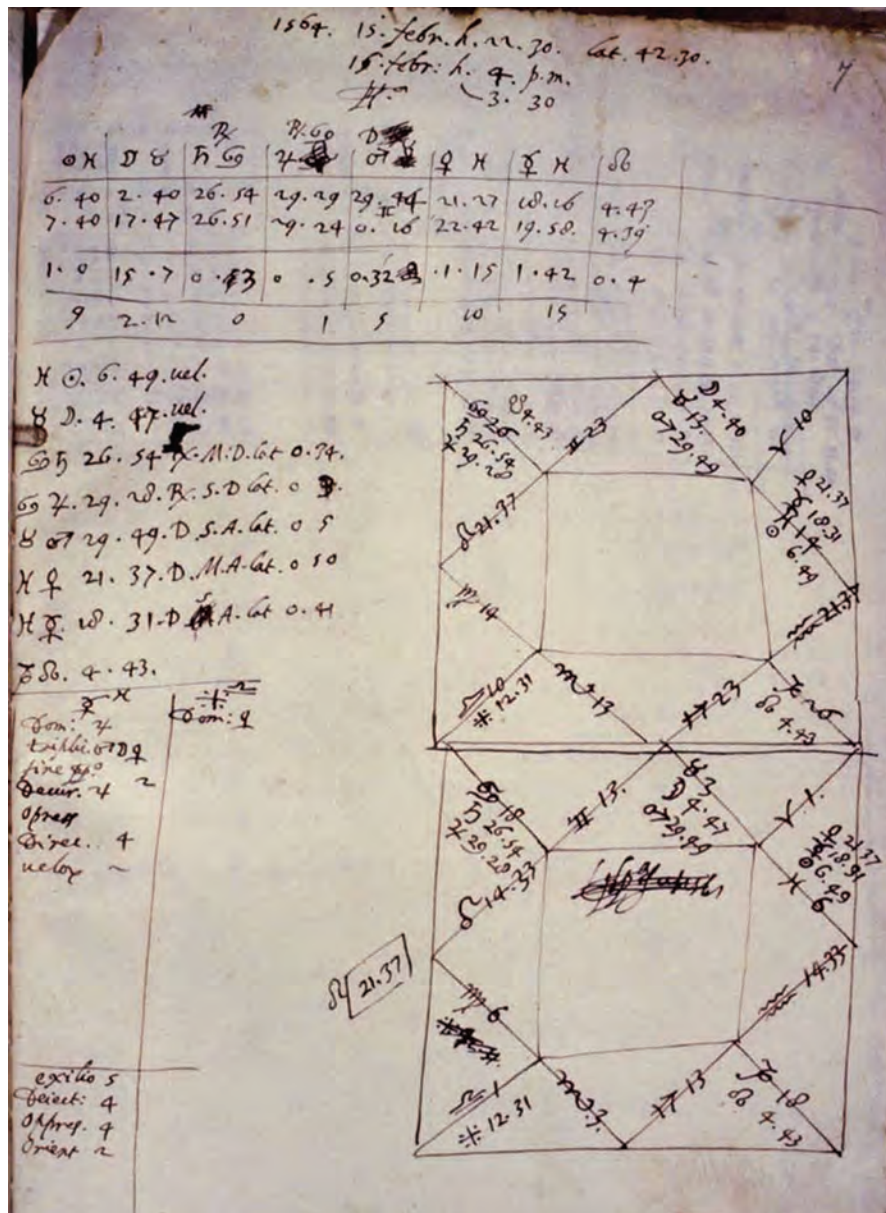 1564. 15. febr. h. 22. 30. lat. 42. 30.
15. febr: h. 4. p.m.
3. 30
7
℞ ℞. ♋ D
☉ ♓ ☽ ♉ ♄ ♋ ♃ ♂ ♀ ♓ ☿ ♓ ☊
6. 40 2. 40 26. 54 29. 29 29. 44 21. 27 18. 16 4. 47
7. 40 17. 47 26. 51 29. 24 0. 16 22. 42 19. 58. 4. 39
♊
1. 0 15. 7 0. 3 0. 5 0. 32 1. 15 1. 42 0. 4
9 2. 12 0 1 5 10 15
♓ ☉. 6. 49. uel.
♉ ☽. 4. 47. uel.
♋ ♄ 26. 54 ℞. M. D. lat 0. 34.
♋ ♃. 29. 28. ℞. S. D lat. 0
♉ ♂ 29. 49. D. S. A. lat. 0 5
♓ ♀ 21. 37. D. M. A. lat. 0 50
♓ ☿. 18. 31. D A. lat 0. 41
♑ ☊. 4. 43.
☿ ♓
Dom: ♃
triplic. ♂ ☽ ♀
fine
Decur. ♃ 2
Opress
Direc. 4
uelox 2
♎
Dom: ♀
exilio 5
Deiect: 4
Oppres. 4
Orient 2
♋ 26
♄ 26. 54
♃ 29. 28
☋ 4. 43
♊ 23
☽ 4. 40
♉ 13.
♂ 29. 49
♈ 10
♀ 21. 37
☿ 18. 31
♓ 14
☉ 6. 49
♌ 21. 37
♍ 14
♒ 21. 37
♎ 10
12. 31
♏ 13
♐ 23
♑ 26
☊ 4. 43
♋ 18
♄ 26. 54
♃ 29. 28
♊ 13.
♉ 3
☽ 4. 47
♂ 29. 49
♈ 1.
♀ 21. 37
☿ 18. 31
☉ 6. 49
♓ 6
♌ 14. 33
♌ 21. 37
♒ 14. 33
♍ 6
♎ 1
12. 31
♏ 3.
♐ 13
♑ 18
☊ 4. 43